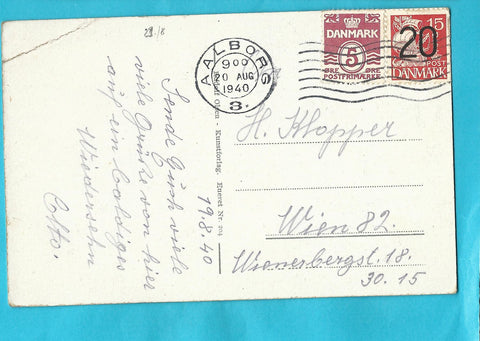 29./8
DANMARK
5
ØRE ØRE
POSTFRIMÆRKE
15
20
POST
DANMARK
AALBORG
900
20 AUG
1940
3.
Olsen - Kunstforlag. Eneret Nr.
Sende Euch viele
viele Grüsse von hier
auf ein baldiges
Wiedersehn
Otto.
19.8.40
H. Klopper
Wien 82.
Wienerbergst. 18.
30. 15